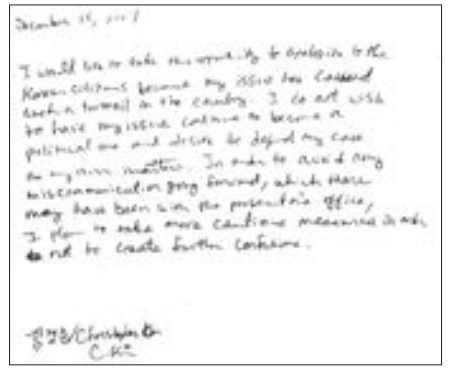 December 15, 2007
I would like to take this opportunity to apologize to the
Korean citizens because my issue has caused
such a turmoil in the country. I do not wish
to have my issue continue to become a
political one and desire to defend my case
on my own matters. In order to avoid any
miscommunication going forward, which there
may have been with the prosecutor's office,
I plan to take more cautious measures in order
not to create further confusion.
김경준/Christopher Kim
C. Kim